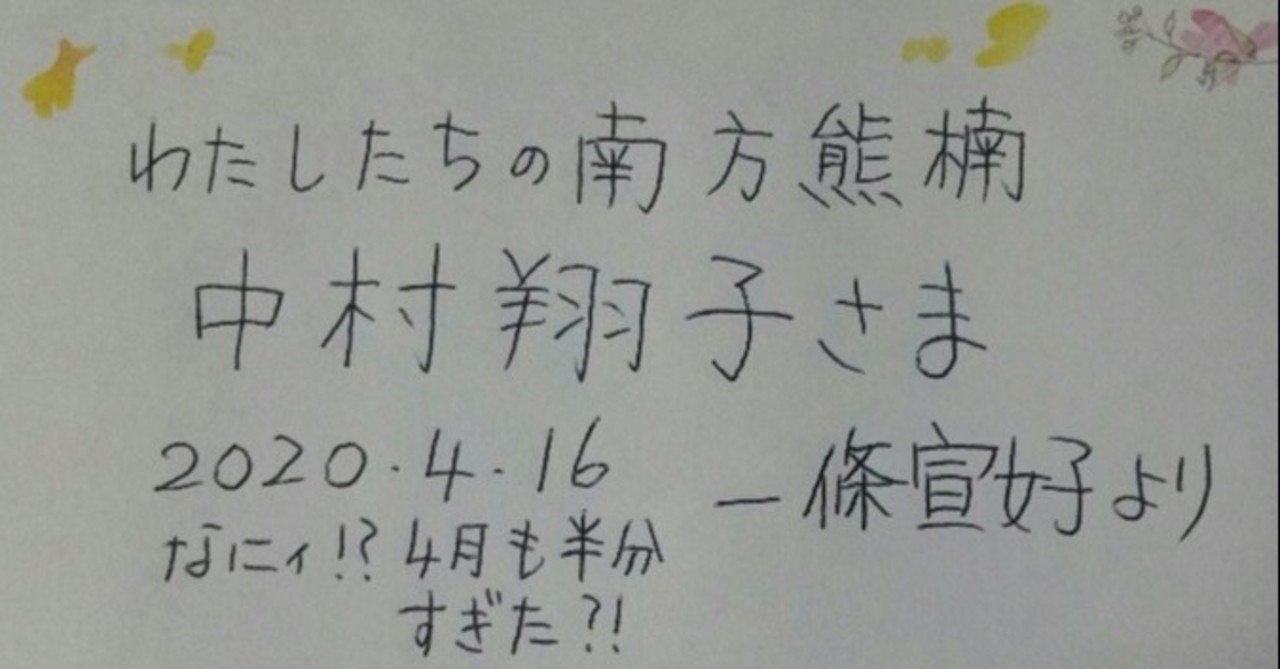 わたしたちの南方熊楠
中村翔子さま
2020.4.16
一條宣好より
なにィ!?4月も半分
すぎた?!